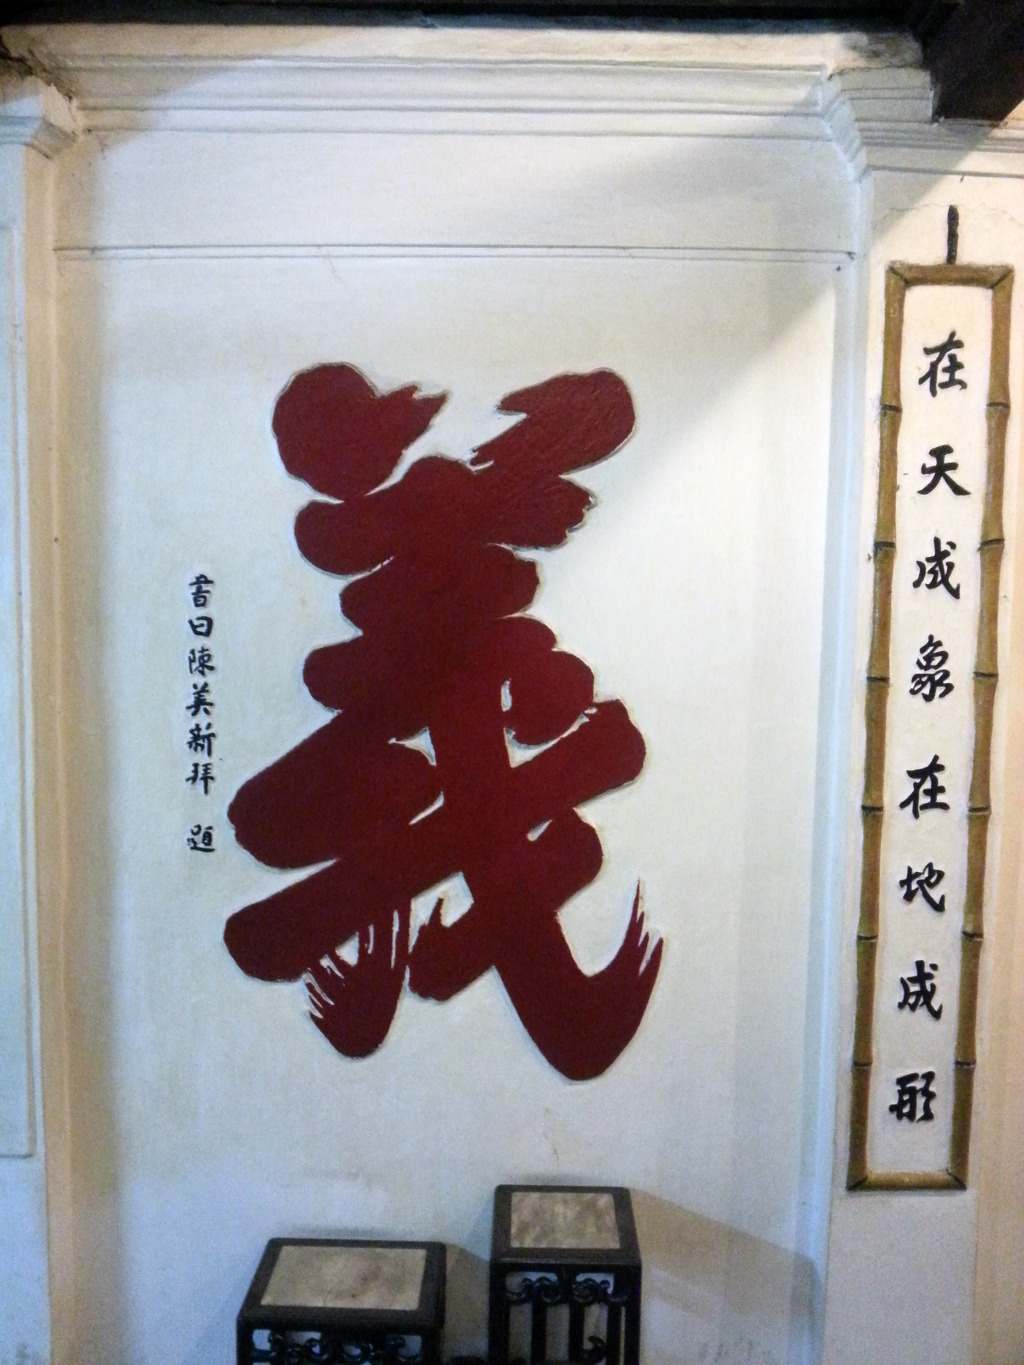 在天成象在地成形
義
陳美新拜題